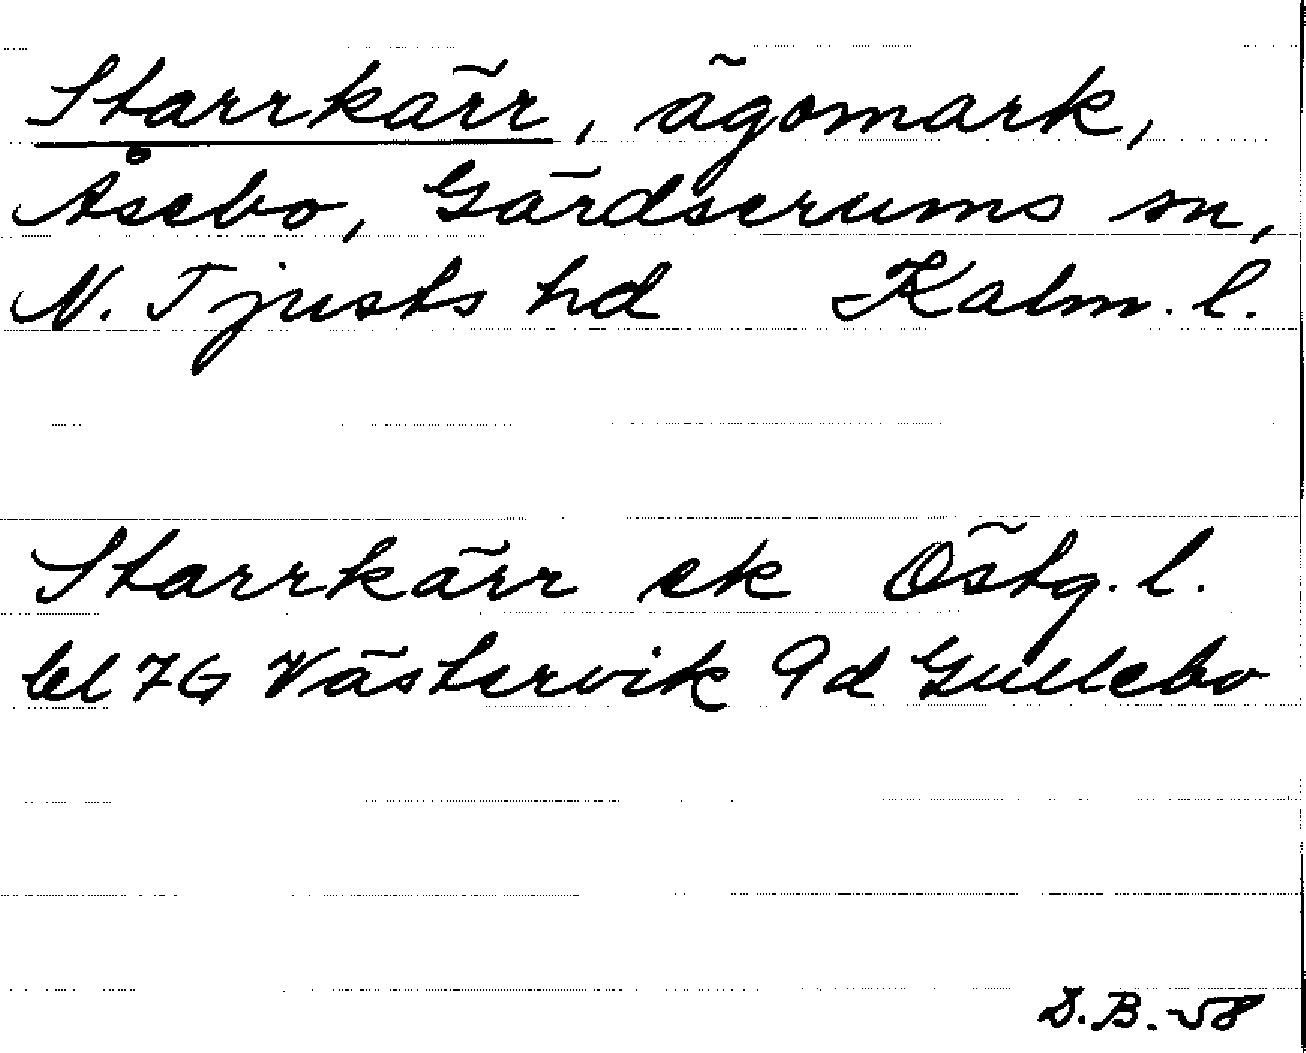 Starrkärr, ägomark,
Åsebo, Gärdserums sn,
N. Tjusts hd Kalm. l.
Starrkärr ek Östg. l.
bl 7G Västervik 9d Gullebo
D.B.-58